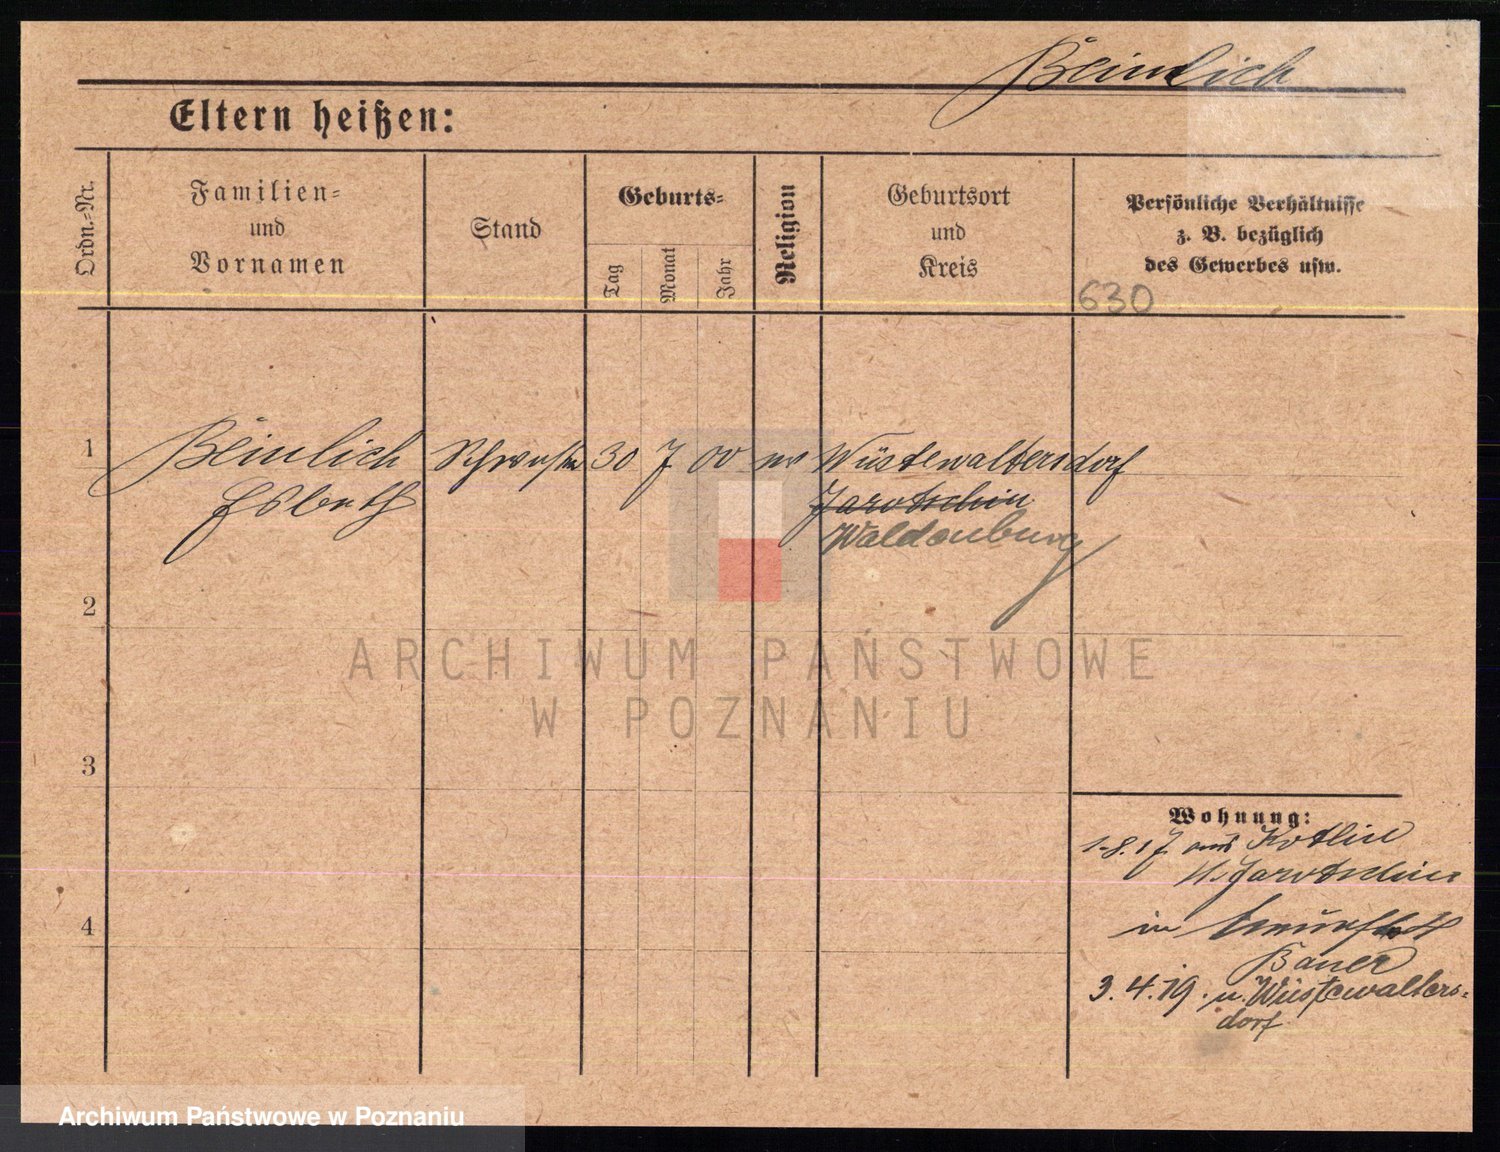 Beinlich
Eltern heißen:
Ordn.=Nr.
Familien=
und
Vornamen
Stand
Geburts=
Tag
Monat
Jahr
Religion
Geburtsort
und
Kreis
Persönliche Verhältnisse
z. B. bezüglich
des Gewerbes usw.
630
1
Beinlich
30 7 00
Wüstewaltersdorf
Jarotschin
Waldenburg
2
3
4
Wohnung:
1.8.17 aus Kotlin
Jarotschin
in
Bauer
3.4.19. n. Wüstewalters=
dorf
ARCHIWUM PAŃSTWOWE
W POZNANIU
Archiwum Państwowe w Poznaniu